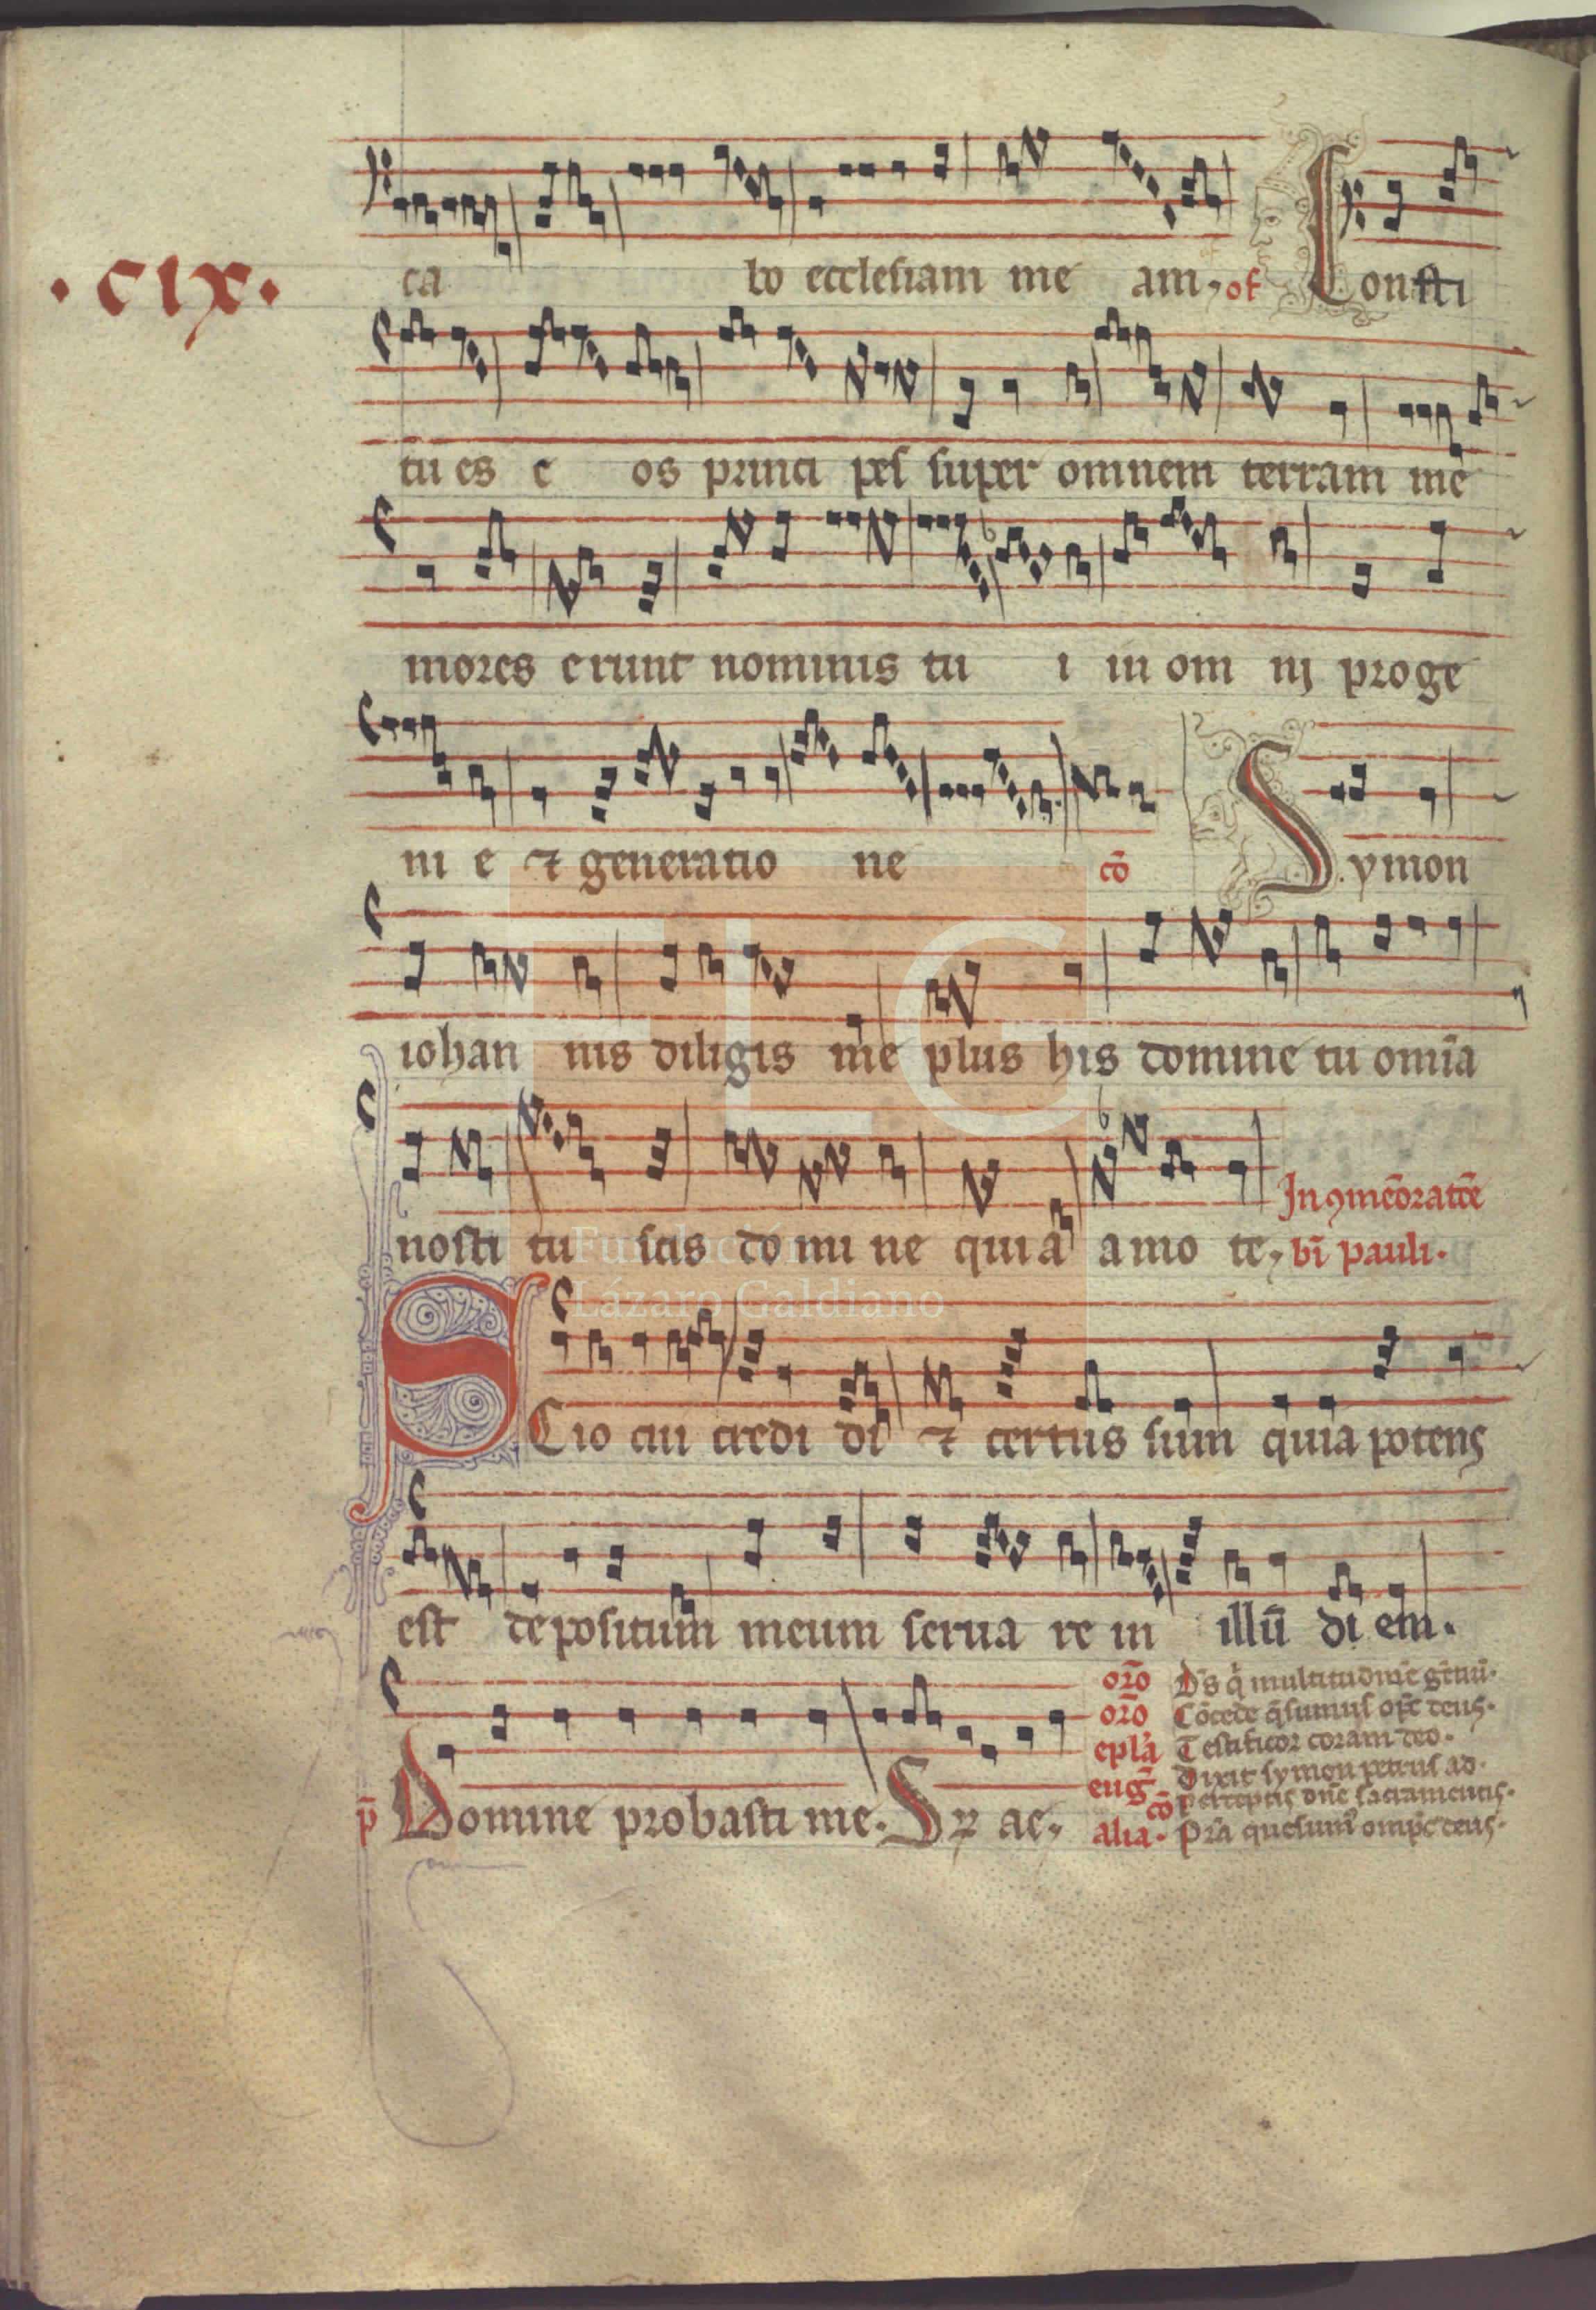 · cix ·
ca bo ecclesiam me am, of Consti
tu es e os princi pes super omnem terram me
mores erunt nominis tu i in om nj proge
ni e ⁊ generatio ne cō Symon
iohan nis diligis me plus his domine tu omīa
nosti tu scis do mi ne quia amo te, In ꝯmēoratōe
bī pauli.
SCio cui credi di ⁊ certus sum quia potens
est depositum meum serua re in illū di em.
p̄ Domine probasti me. S ae,
or̄o Ds q̄ multitudinē gētiū.
or̄o Cōcede q̄sumus deus.
epl̄a Testificor coram deo.
euḡ Dixit symon petrus ad.
cō perceptis dn̄e sacramentis.
alia. deus.
Fundación
Lázaro Galdiano